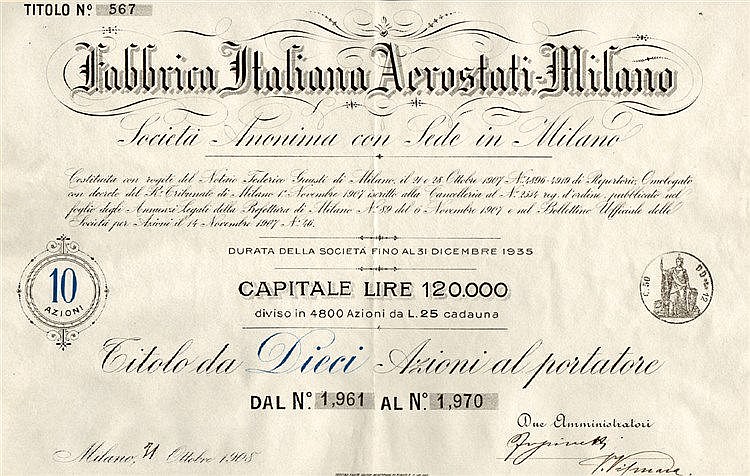 TITOLO No 567
Fabbrica Italiana Aerostati-Milano
Società Anonima con Sede in Milano
Costituita con rogiti del Notaio Federico Guasti di Milano, il 21 e 28 Ottobre 1907 No. 4896-4919 di Repertorio, Omologato
con decreto del Ro. Tribunale di Milano 1o Novembre 1907 iscritto alla Cancelleria al No. 1554 reg. d'ordine, pubblicato nel
foglio degli Annunzi Legali della Prefettura di Milano No 89 del 6 Novembre 1907 e nel Bollettino Ufficiale delle
Società per Azioni il 14 Novembre 1907 No. 46.
DURATA DELLA SOCIETÀ FINO AL 31 DICEMBRE 1935
CAPITALE LIRE 120.000
diviso in 4800 Azioni da L. 25 cadauna
10
AZIONI
C. 50
12
Titolo da Dieci Azioni al portatore
DAL No. 1,961 AL No. 1,970
Due Amministratori
Milano, 21 Ottobre 1908